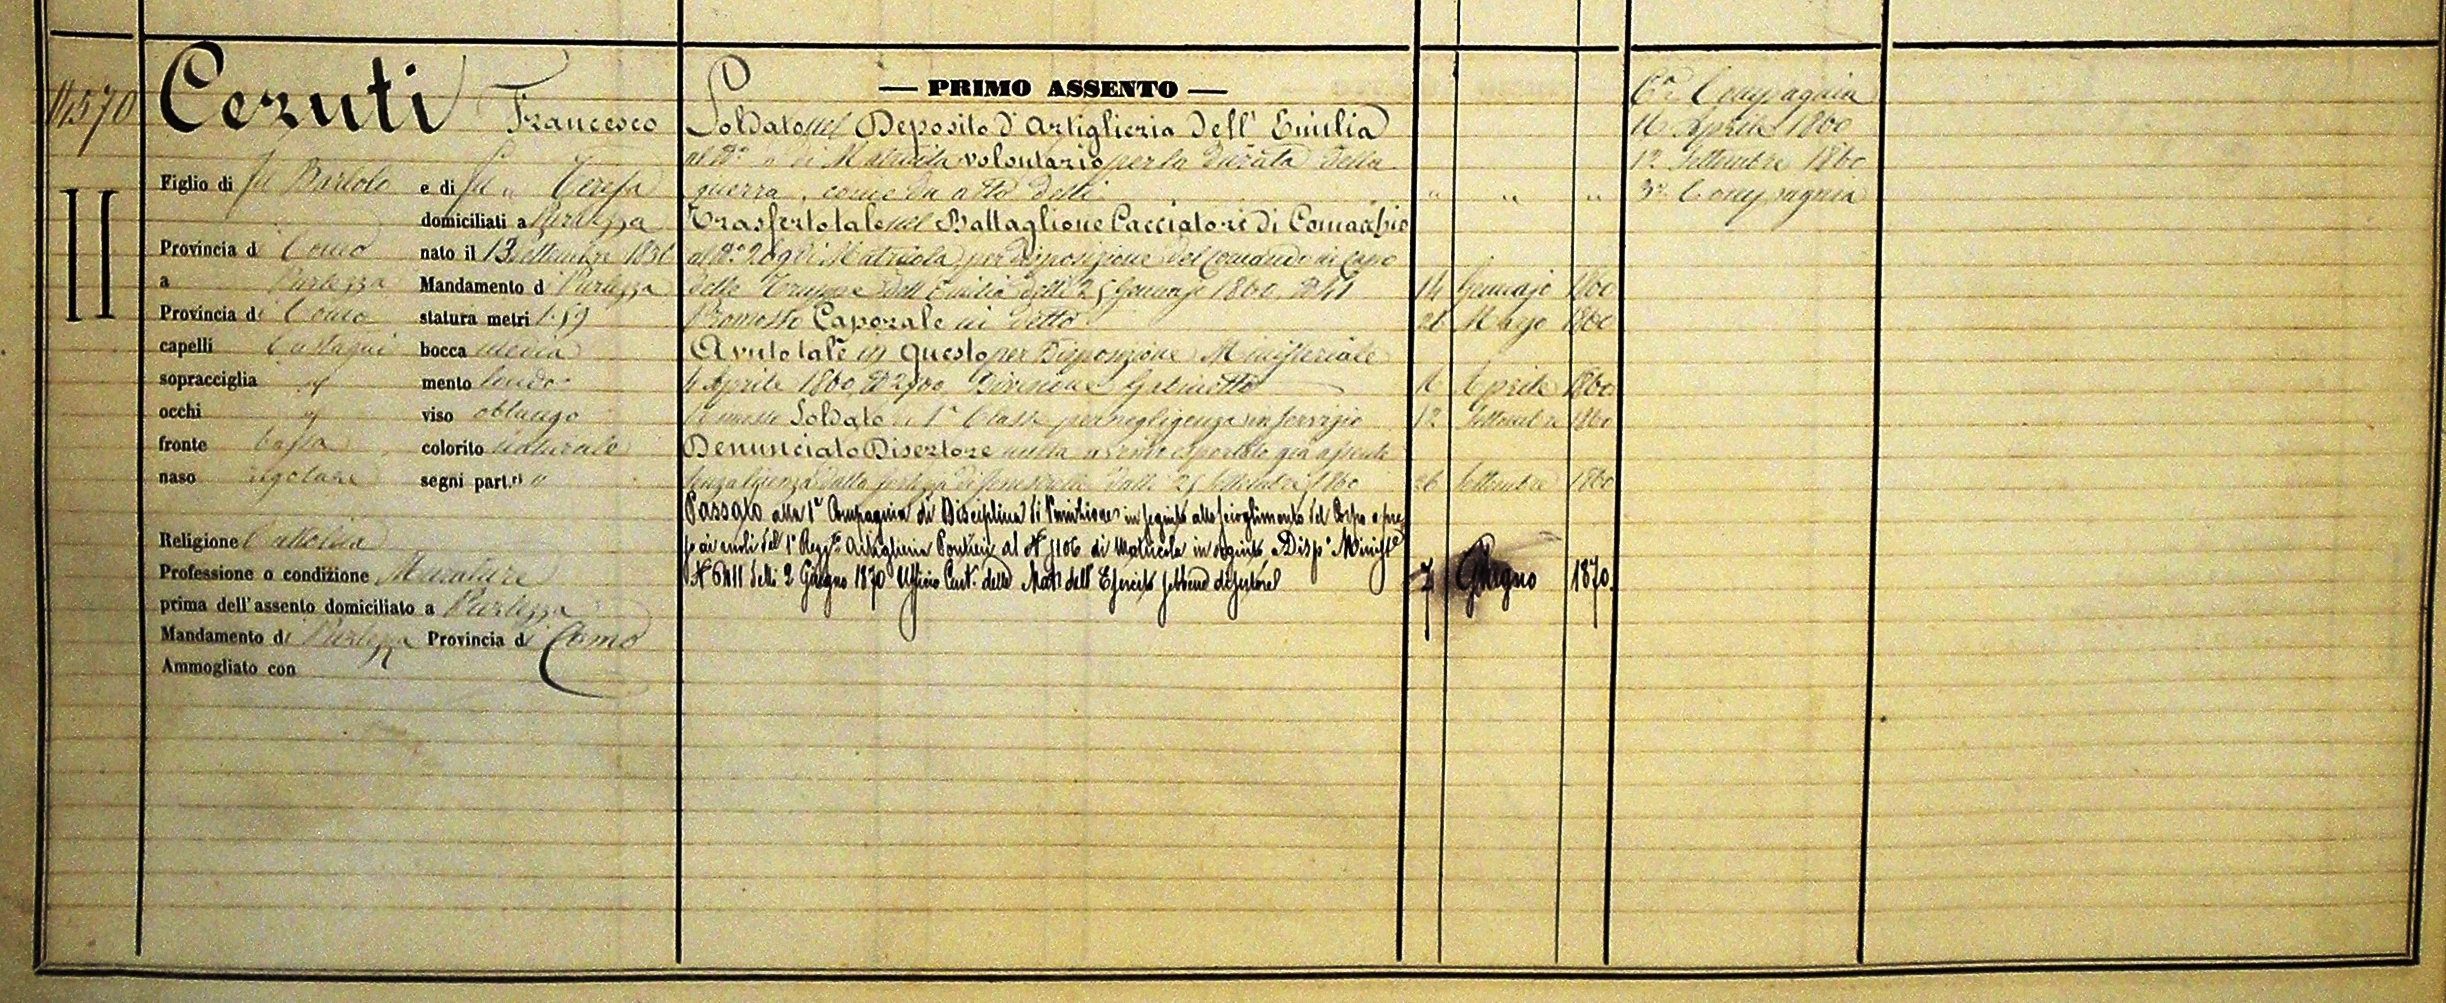 14570
II
Ceruti Francesco
Figlio di fu Bartolo e di fu Teresa
domiciliati a Porlezza
Provincia di Como nato il 13 Settembre 18
a Porlezza Mandamento di Porlezza
Provincia di Como statura metri 1.59
capelli Castagni bocca media
sopracciglia id mento tondo
occhi id viso oblungo
fronte bassa colorito naturale
naso regolare segni part.ri "
Religione Cattolica
Professione o condizione Muratore
prima dell'assento domiciliato a Porlezza
Mandamento di Porlezza Provincia di Como
Ammogliato con
— PRIMO ASSENTO —
Soldato nel Deposito d'Artiglieria dell'Emilia
al N° di Matricola volontario per la durata della
guerra, come da atto delli " " "
Trasferto tale nel Battaglione Cacciatori di Comacchio
al N° 269 di Matricola per disposizione del Comando in Capo
delle Truppe dell'Emilia delli 25 Gennajo 1860, N 41 14 Gennajo 1860
Promosso Caporale in detto 21 Marzo 1860
Avuto tale in questo per Disposizione Ministeriale
4 Aprile 1860, N 2900, Divisione Gabinetto 16 Aprile 1860
Rimosso Soldato di 1ª Classe per negligenza in servizio 12 Settembre 1860
Denunciato Disertore già assente
senza licenza dalla delli 25 Settembre 1860 26 Settembre 1860
Passato alla 1ª Compagnia di Disciplina di Punizione in seguito allo scioglimento del Corpo e pre
so ai ruoli del 1° Regg.to Artiglieria Pontieri al N° 1106 di Matricola in seguito a Disp.e Minist.e
N° 6411 delli 2 Giugno 1870 Ufficio Cent. delle Mat. dell'Esercito sebbene disertore 7 Giugno 1870.
6ª Compagnia
16 Aprile 1860
12 Settembre 1860
3ª Compagnia